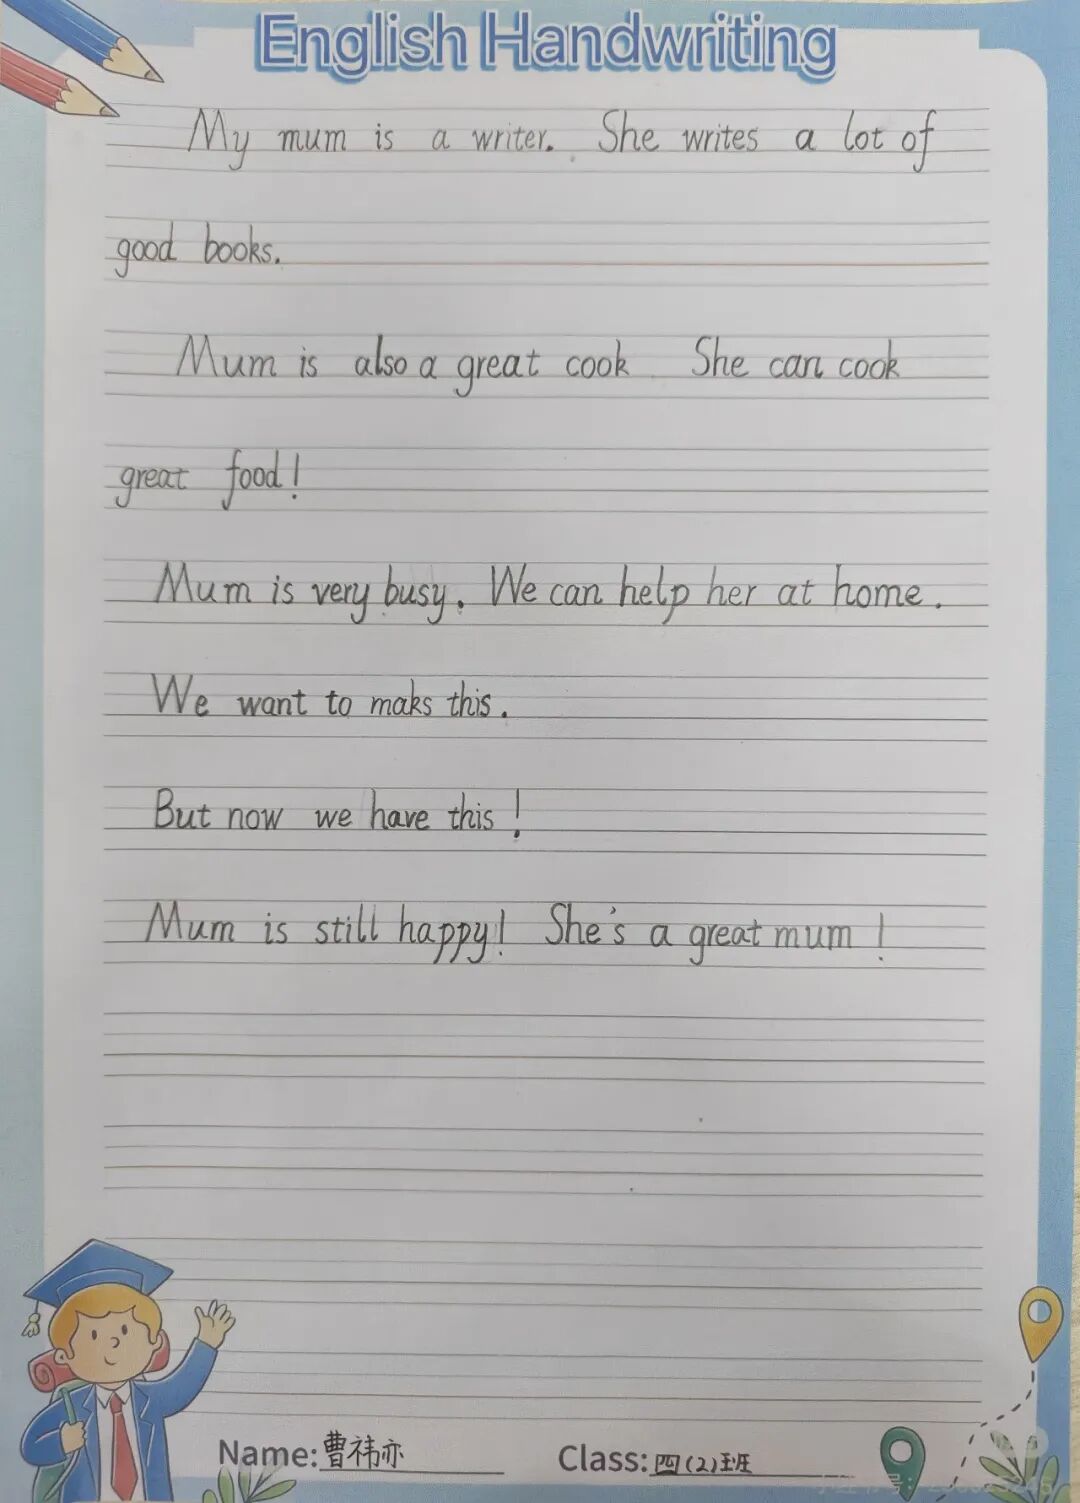 English Handwriting
My mum is a writer. She writes a lot of
good books.
Mum is also a great cook She can cook
great food!
Mum is very busy. We can help her at home.
We want to maks this.
But now we have this!
Mum is still happy! She's a great mum!
Name:曹祎亦 Class:四(2)班